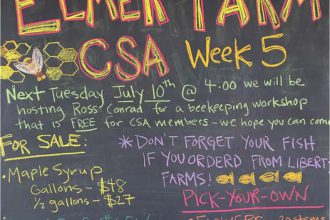 ELMER FARM
CSA Week 5
Next Tuesday July 10th @ 4:00 we will be
hosting Ross Conrad for a beekeeping workshop
that is FREE for CSA members - we hope you can come
FOR SALE:
• Maple Syrup
Gallons - $48
½ gallons - $27
* DON'T FORGET YOUR FISH
IF YOU ORDERD FROM LIBERT
FARMS!
PICK-YOUR-OWN